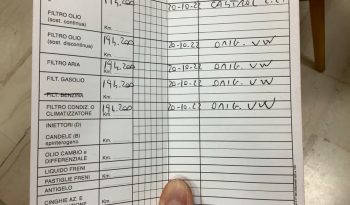 OLIO 194.200 20-10-22 CASTROL
(sost. continua) Km.
FILTRO OLIO 194.200 20-10-22 ORIG. VW
(sost. discontinua) Km.
FILTRO ARIA 194.200 20-10-22 ORIG. VW
Km.
FILT. GASOLIO 194.200 20-10-22 ORIG. VW
FILT. BENZINA Km.
FILTRO CONDIZ. O 194.200 20-10-22 ORIG. VW
CLIMATIZZATORE Km.
INIETTORI (D)
CANDELE (B)
spinterogeno Km.
OLIO CAMBIO e
DIFFERENZIALE Km.
LIQUIDO FRENI
PASTIGLIE FRENI
ANTIGELO
CINGHIE AZ. E Km.